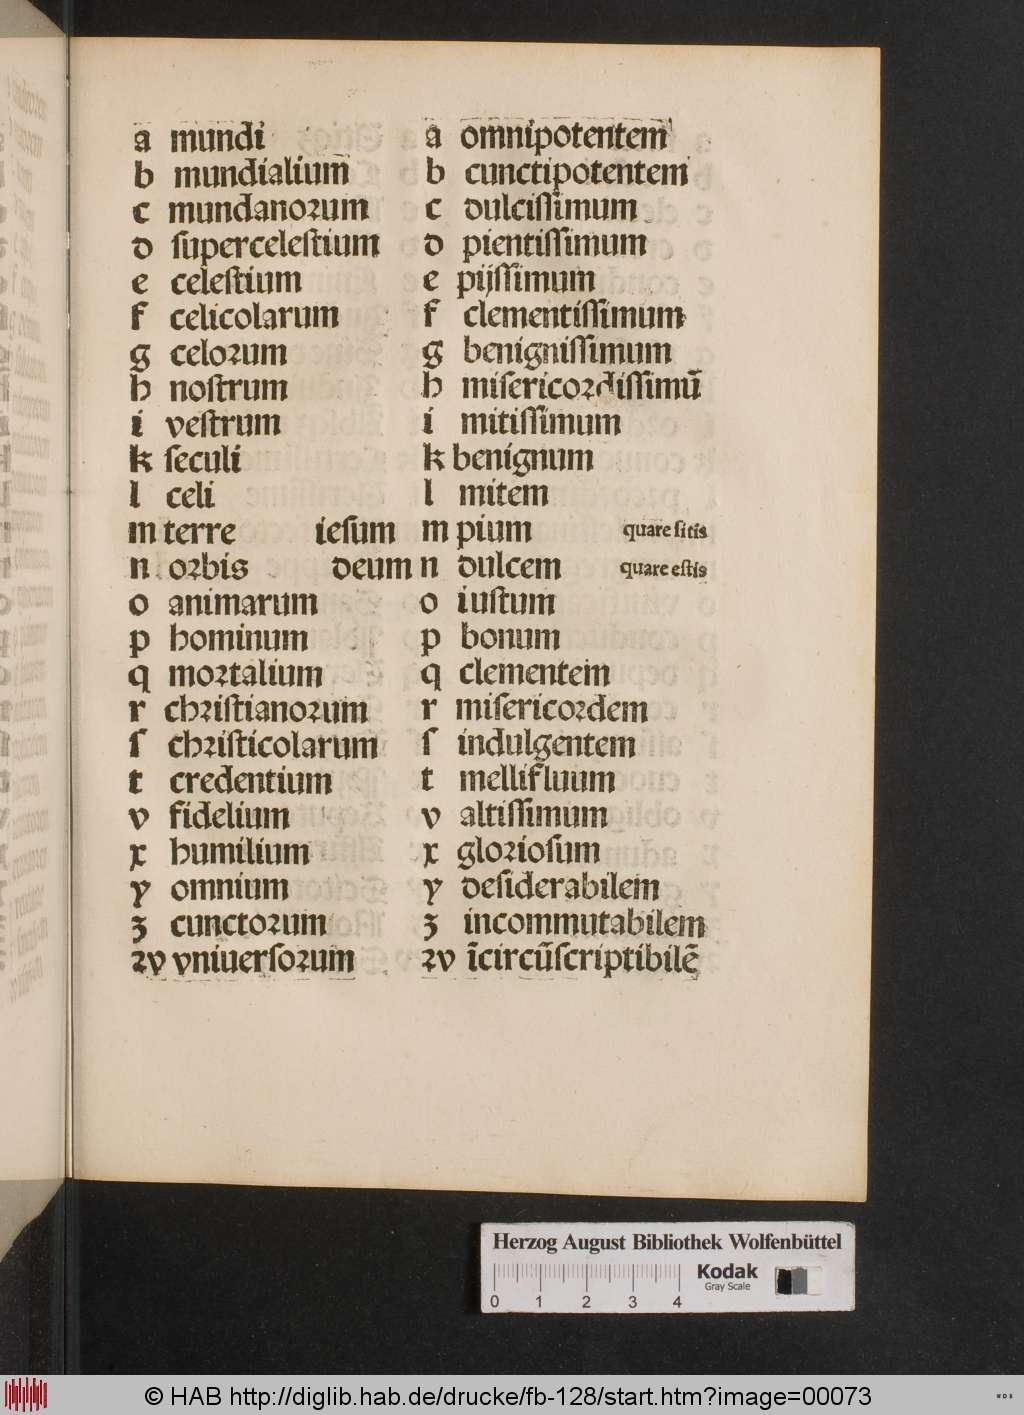 a mundi
b mundialium
c mundanoꝛum
d ſuperceleſtium
e celeſtium
f celicolarum
g celoꝛum
h noſtrum
i veſtrum
k ſeculi
l celi
m terre ieſum
n oꝛbis deum
o animarum
p hominum
q moꝛtalium
r chꝛiſtianoꝛum
ſ chꝛiſticolarum
t credentium
v fidelium
x humilium
y omnium
ꝫ cunctoꝛum
ꝛv vniuerſoꝛum
a omnipotentem
b cunctipotentem
c dulciſſimum
d pientiſſimum
e pijſſimum
f clementiſſimum
g benigniſſimum
h miſericoꝛdiſſimū
i mitiſſimum
k benignum
l mitem
m pium quare ſitis
n dulcem quare eſtis
o iuſtum
p bonum
q clementem
r miſericoꝛdem
ſ indulgentem
t mellifluum
v altiſſimum
x gloꝛioſum
y deſiderabilem
ꝫ incommutabilem
ꝛv īcircūſcriptibilē
Herzog August Bibliothek Wolfenbüttel
Kodak
Gray Scale
0 1 2 3 4
© HAB http://diglib.hab.de/drucke/fb-128/start.htm?image=00073
WDB